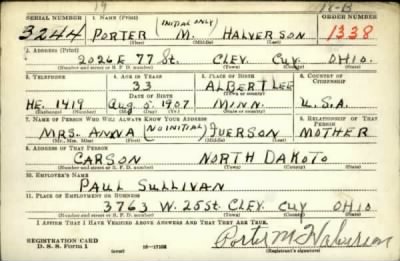 19 18-B
SERIAL NUMBER 1. NAME (Print) ORDER NUMBER
3244 PORTER (INITIAL ONLY) M. HALVERSON 1338
(First) (Middle) (Last)
2. ADDRESS (Print)
2026 E 77 St. CLEV. CUY OHIO.
(Number and street or R. F. D. number) (Town) (County) (State)
3. TELEPHONE 4. AGE IN YEARS 5. PLACE OF BIRTH 6. COUNTRY OF CITIZENSHIP
33 ALBERT LEE
DATE OF BIRTH (Town or county)
HE. 1419 Aug. 5 1907 MINN. U.S.A.
(Exchange) (Number) (Mo.) (Day) (Yr.) (State or country)
7. NAME OF PERSON WHO WILL ALWAYS KNOW YOUR ADDRESS 8. RELATIONSHIP OF THAT PERSON
MRS. ANNA (NO INITIAL) IVERSON MOTHER
(Mr., Mrs., Miss) (First) (Middle) (Last)
9. ADDRESS OF THAT PERSON
CARSON NORTH DAKOTO
(Number and street or R. F. D. number) (Town) (County) (State)
10. EMPLOYER'S NAME
PAUL SULLIVAN
11. PLACE OF EMPLOYMENT OR BUSINESS
3763 W. 25 St. CLEV. CUY OHIO
(Number and street or R. F. D. number) (Town) (County) (State)
I AFFIRM THAT I HAVE VERIFIED ABOVE ANSWERS AND THAT THEY ARE TRUE.
REGISTRATION CARD
D. S. S. Form 1 (over) 16-17105 Porter M Halverson
(Registrant's signature)